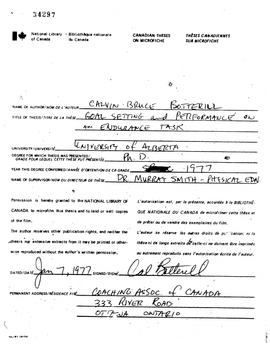 34297
National Library of Canada
Bibliothèque nationale du Canada
CANADIAN THESES ON MICROFICHE
THÈSES CANADIENNES SUR MICROFICHE
NAME OF AUTHOR/NOM DE L'AUTEUR CALVIN BRUCE BOTTERILL
TITLE OF THESIS/TITRE DE LA THÈSE GOAL SETTING and PERFORMANCE ON
an ENDURANCE TASK
UNIVERSITY/UNIVERSITÉ UNIVERSITY of ALBERTA
DEGREE FOR WHICH THESIS WAS PRESENTED/
GRADE POUR LEQUEL CETTE THÈSE FUT PRÉSENTÉE Ph.D.
YEAR THIS DEGREE CONFERRED/ANNÉE D'OBTENTION DE CE GRADE 1977
NAME OF SUPERVISOR/NOM DU DIRECTEUR DE THÈSE DR MURRAY SMITH - PHYSICAL EDN
Permission is hereby granted to the NATIONAL LIBRARY OF
CANADA to microfilm this thesis and to lend or sell copies
of the film.
The author reserves other publication rights, and neither the
thesis nor extensive extracts from it may be printed or other-
wise reproduced without the author's written permission.
L'autorisation est, par la présente, accordée à la BIBLIOTHÈ-
QUE NATIONALE DU CANADA de microfilmer cette thèse et
de prêter ou de vendre des exemplaires du film.
L'auteur se réserve les autres droits de publication; ni la
thèse ni de longs extraits de celle-ci ne doivent être imprimés
ou autrement reproduits sans l'autorisation écrite de l'auteur.
DATED/DATÉ Jan 7, 1977 SIGNED/SIGNÉ Cal Botterill
PERMANENT ADDRESS/RÉSIDENCE FIXE COACHING ASSOC of CANADA
333 RIVER ROAD
OTTAWA ONTARIO